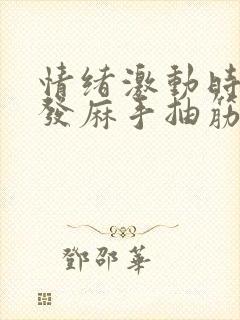 情緒激動時
發麻手抽筋
鄧邵華